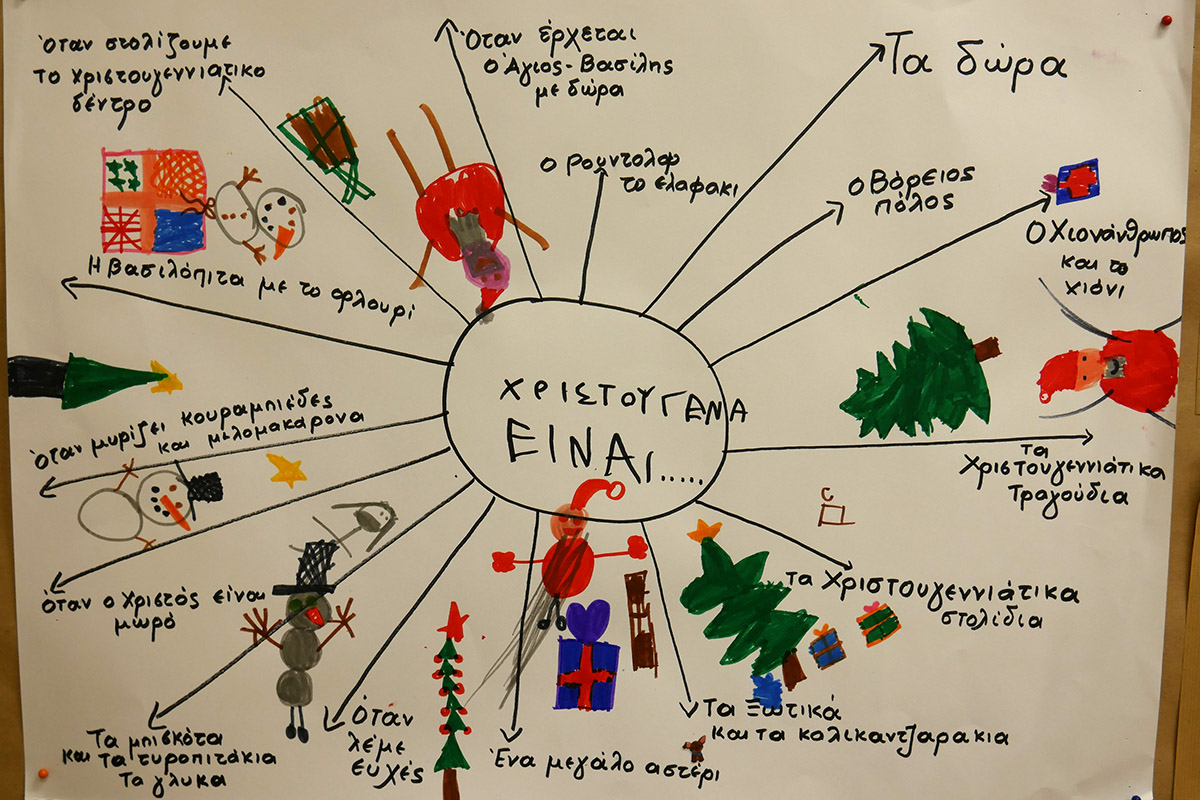 Όταν στολίζουμε
το χριστουγεννιάτικο
δέντρο
Όταν έρχεται
ο Άγιος-Βασίλης
με δώρα
Τα δώρα
ο Ρουντολφ
το ελαφακι
ο Βόρειος
πόλος
Ο Χιονάνθρωπος
και το
χιόνι
Η βασιλόπιτα με το φλουρί
ΧΡΙΣΤΟΥΓΕΝΑ
ΕΙΝΑι.....
όταν μυρίζει κουραμπιέδες
και μελομακαρονα
τα
Χριστουγεννιάτικα
τραγούδια
όταν ο Χριστός είναι
μωρό
τα Χριστουγεννιάτικα
στολίδια
Τα μπισκότα
και τα τυροπιτάκια
Τα γλυκα
Όταν
λέμε
ευχές
Ένα μεγάλο αστέρι
Τα Ξωτικά
και τα καλικαντζαρακια